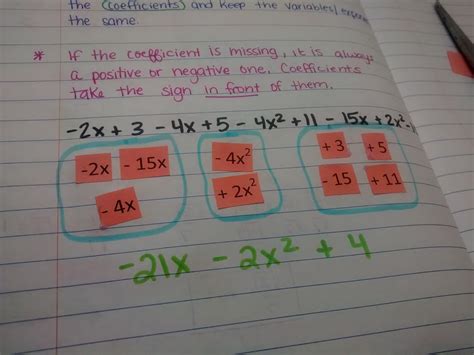 the (coefficients) and keep the variables/
the same.
* If the coefficient is missing, it is always
a positive or negative one. Coefficients
take the sign in front of them.
-2x + 3 - 4x + 5 - 4x² + 11 - 15x + 2x² -
-2x - 15x - 4x² + 3 + 5
- 4x + 2x² - 15 + 11
-21x - 2x² + 4